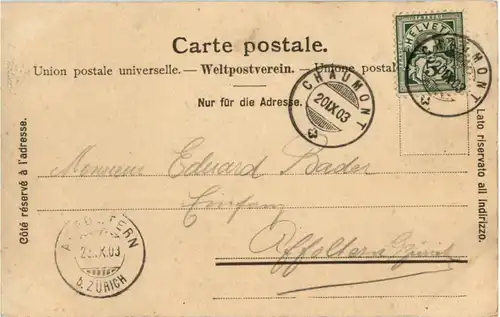 Carte postale.
Union postale universelle. — Weltpostverein. — Unione postale
Nur für die Adresse.
Côté réservé à l'adresse.
Lato riservato all indirizzo.
HELVETIA
5
CHAUMONT
20 IX 03
CHAUMONT
IX 03
Monsieur Eduard Bader
Einfang
Affoltern Zürich
AFFOLTERN
IX.03
b. ZÜRICH